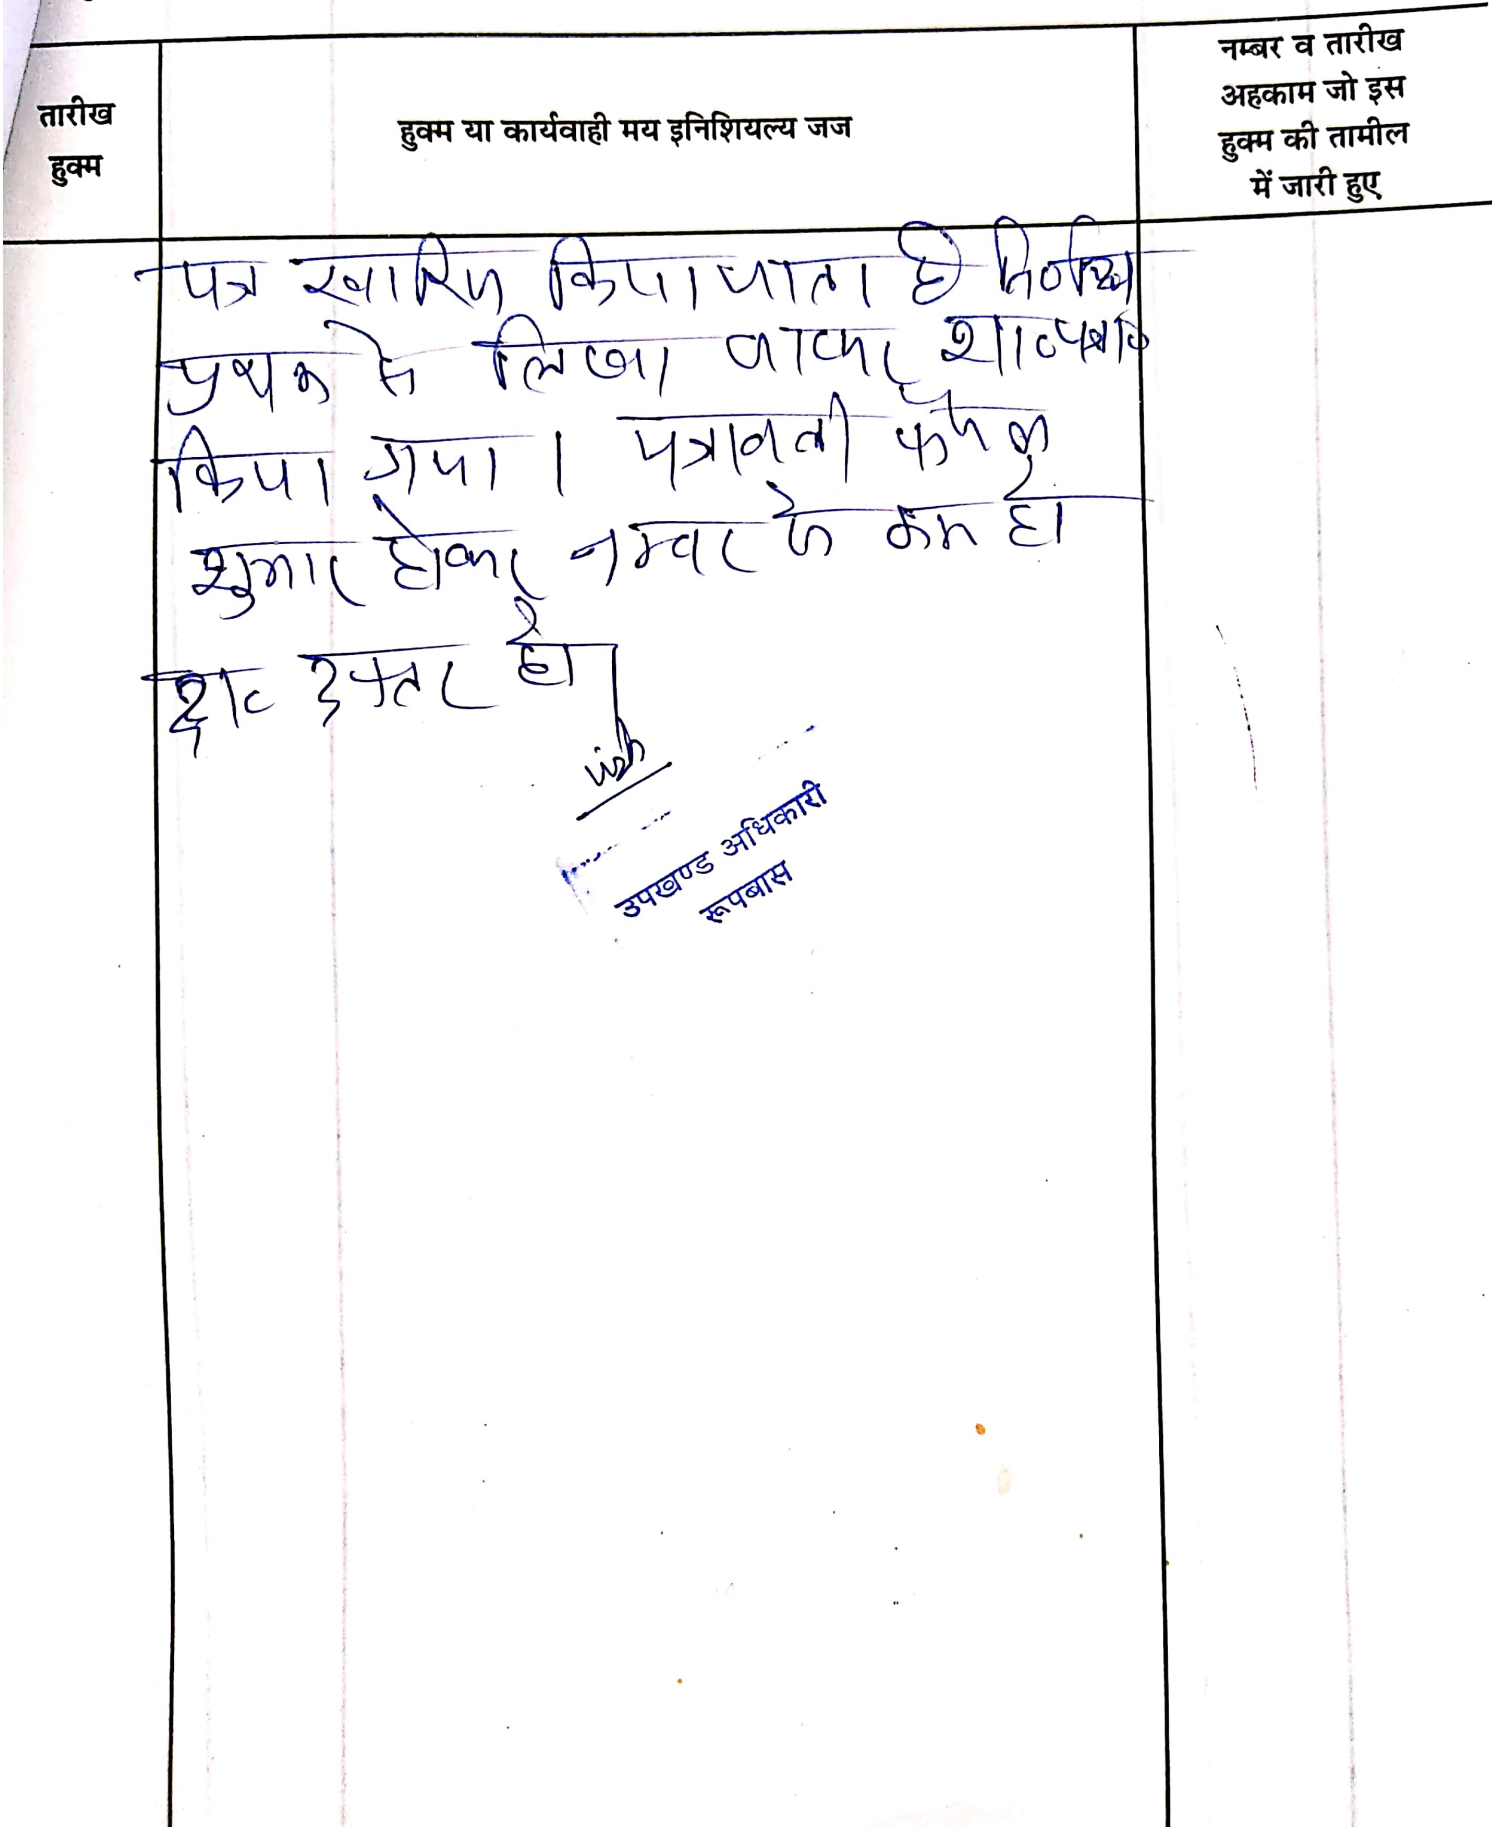 तारीख
हुक्म
हुक्म या कार्यवाही मय इनिशियल्य जज
नम्बर व तारीख
अहकाम जो इस
हुक्म की तामील
में जारी हुए
पत्र खारिज किया जाता है निर्णय
पृथक से लिखा जाकर
किया गया । पत्रावली फैसल
शुमार होकर नम्बर से कम हो
दा० दफ्तर हो।
उपखण्ड अधिकारी
रूपबास